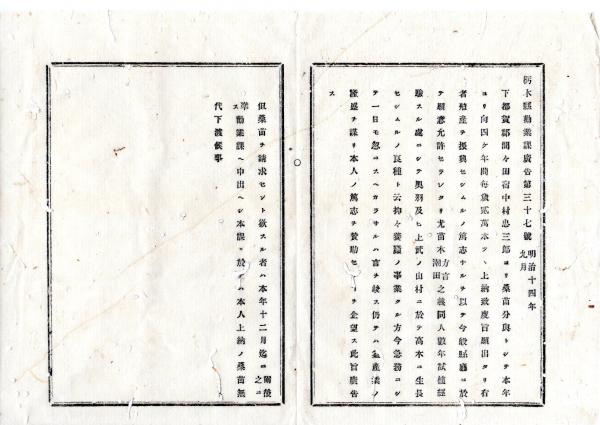 栃木縣勸業課廣告第三十七號 明治十四年九月
下都賀郡間々田宿中村忠三郎ヨリ桑苗分與トシテ本年
ヨリ向四ケ年間每歲貳萬本ツヽ上納致度旨願出タリ有
者殖產ヲ振興セシムルノ篤志ナルヲ以テ今般縣廳ニ於
テ願意允許セラレタリ尤苗木方言潮田之義同人數年試植經
驗スル處ニシテ奧羽及ヒ上武ノ山村ニ於テ高木ニ生長
セシムルノ良種ト云抑々養蠶ノ事業タル方今急務ニシ
テ一日モ忽ニスヘカラサルハ言ヲ竢ス仍テハ益產業ノ
隆盛ヲ謀リ本人ノ篤志ヲ贊助セン ヲ企望ス此旨廣告
ス
但桑苗ヲ請求セント欲スル者ハ本年十二月迄ニ爾後之ニ
準ス勸業課ヘ申出ヘシ本課ニ於テハ本人上納ノ桑苗無
代下渡候事